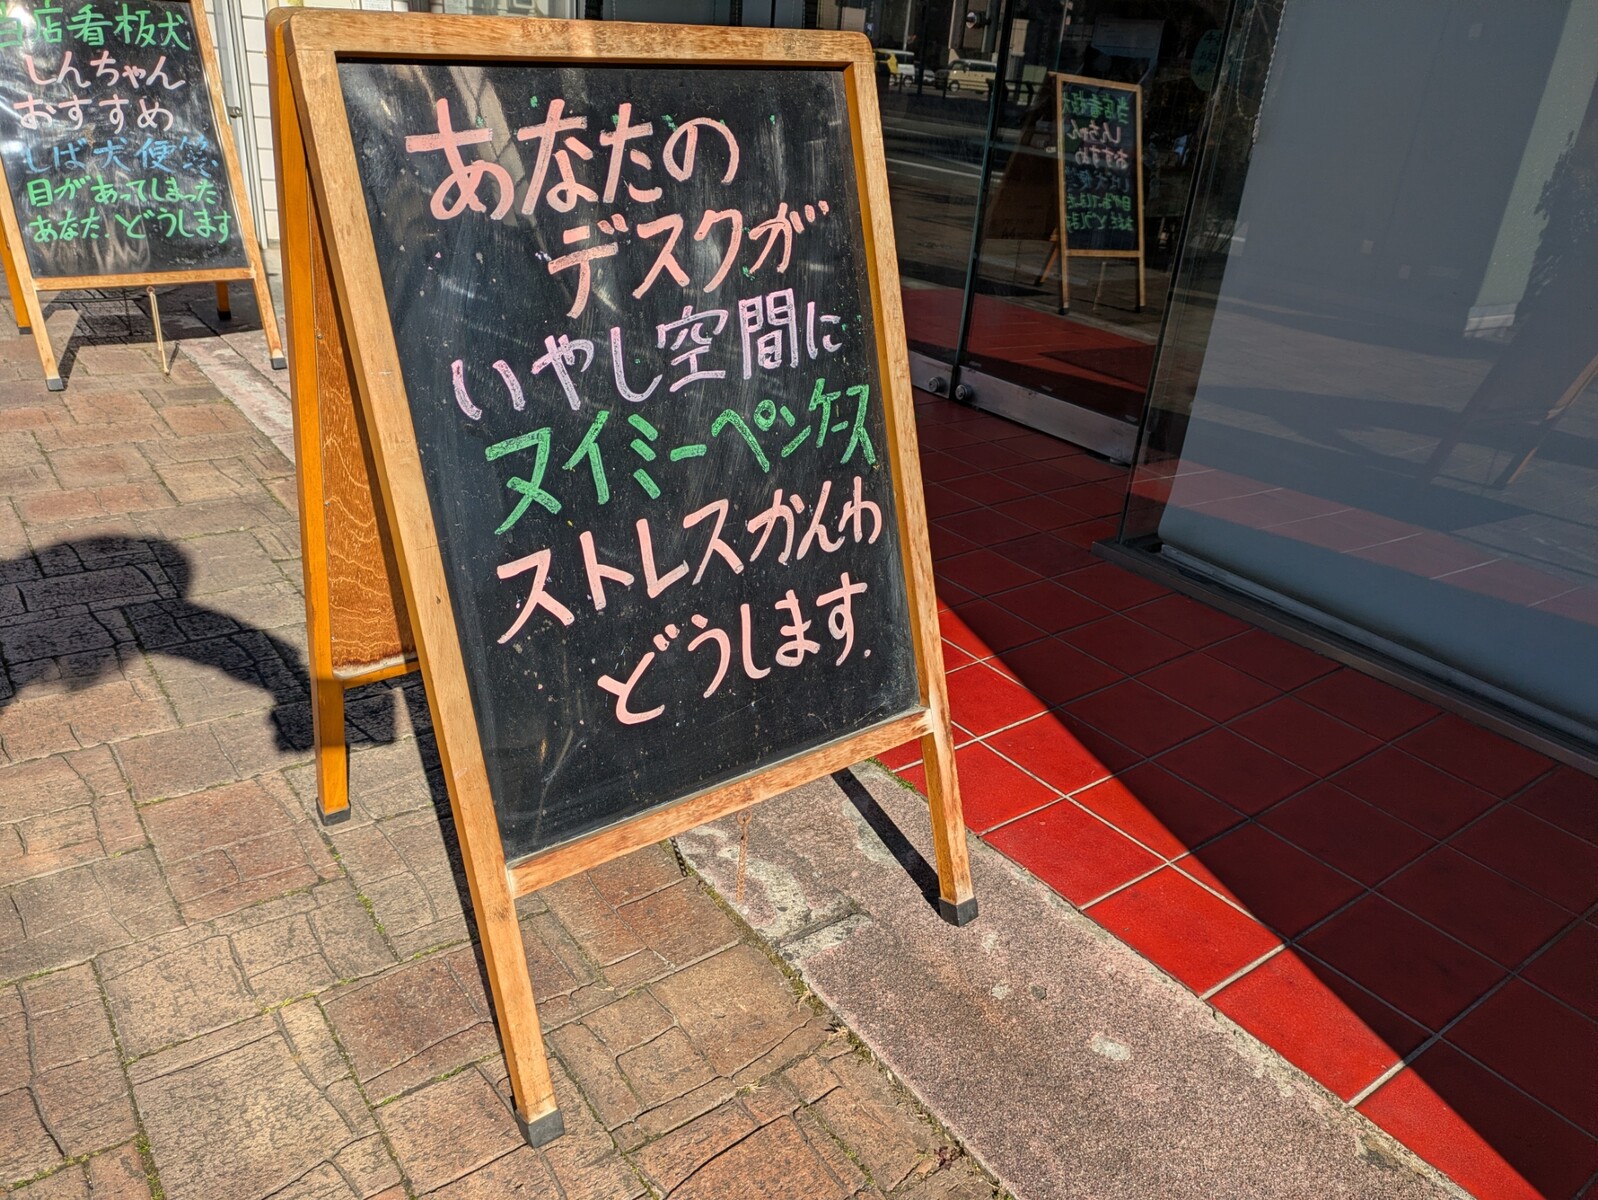 当店看板犬
しんちゃん
おすすめ
しば犬便箋
目があってしまった
あなた、どうします
あなたの
デスクが
いやし空間に
ヌイミーペンケース
ストレスかんわ
どうします.